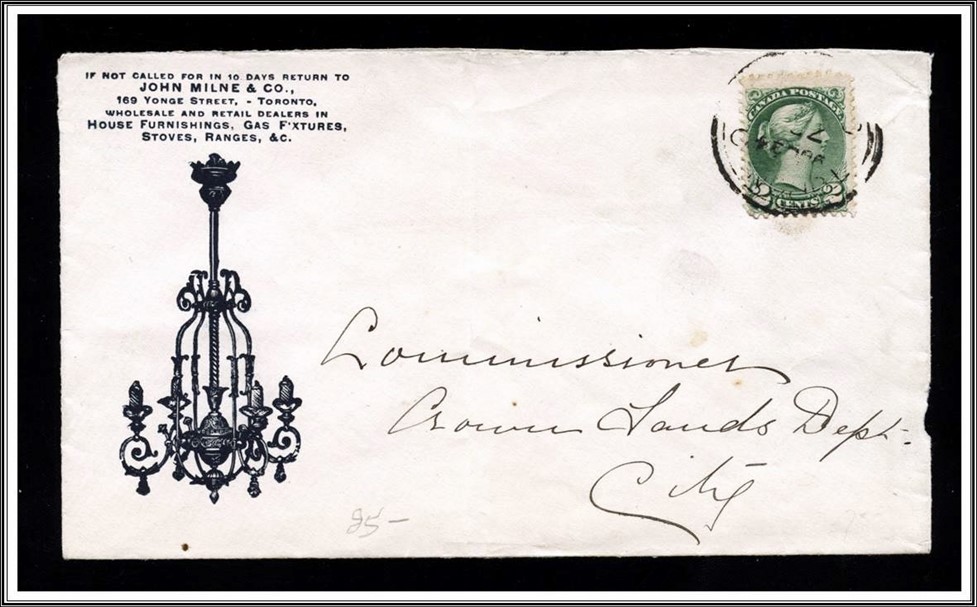 IF NOT CALLED FOR IN 10 DAYS RETURN TO
JOHN MILNE & CO.,
169 YONGE STREET, - TORONTO,
WHOLESALE AND RETAIL DEALERS IN
HOUSE FURNISHINGS, GAS F'XTURES,
STOVES, RANGES, &C.
CANADA POSTAGE
2 CENTS 2
Commissioner
Crown Lands Dept.
City
25-